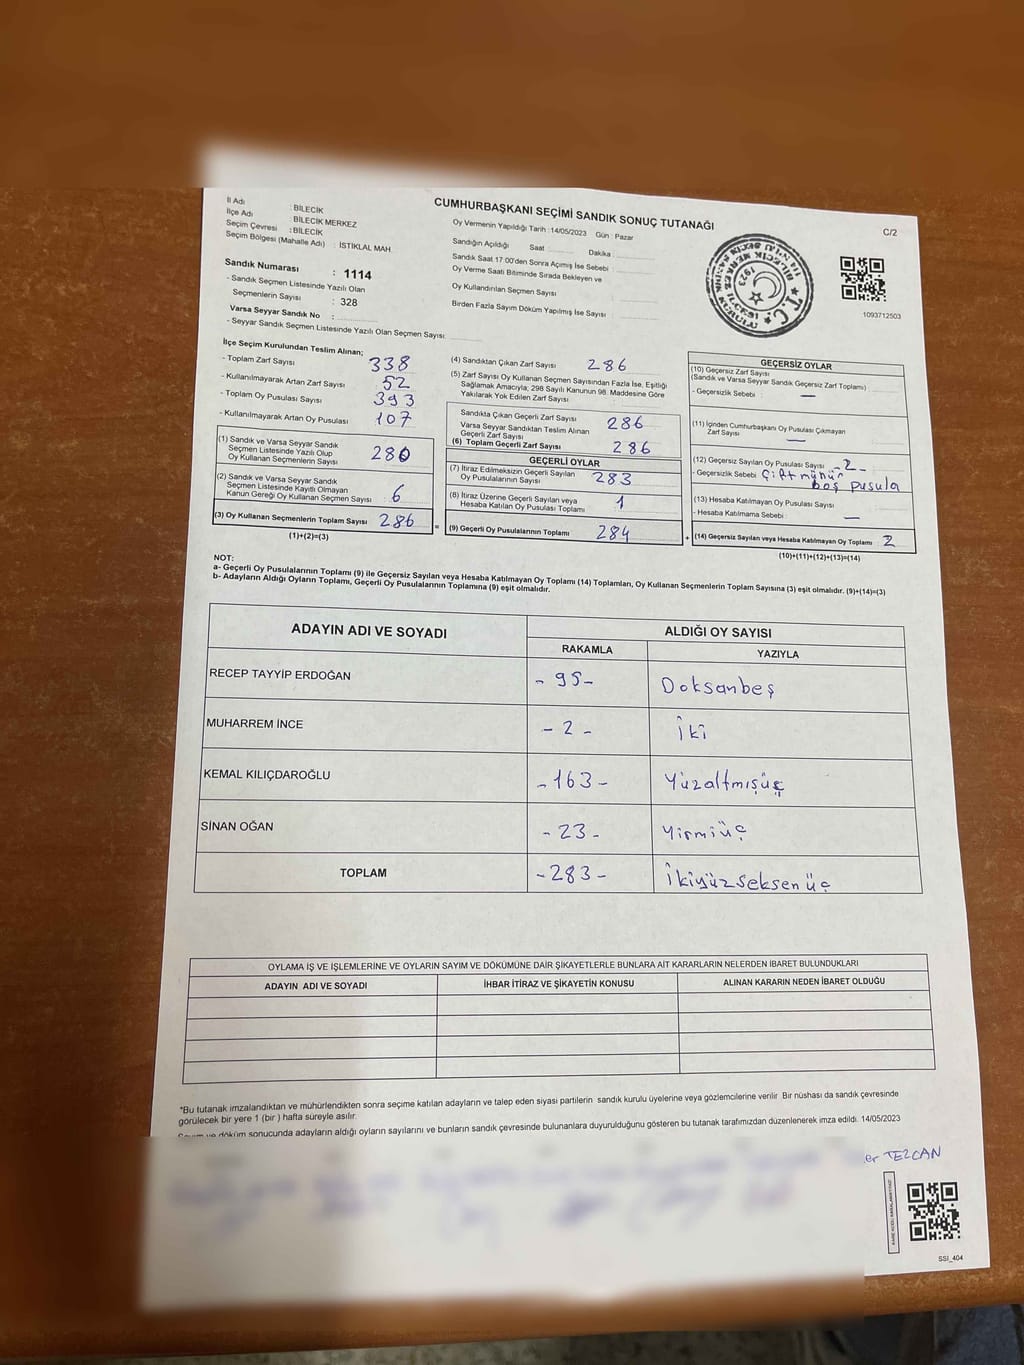 CUMHURBAŞKANI SEÇİMİ SANDIK SONUÇ TUTANAĞI
C/2
İl Adı : BİLECİK
İlçe Adı : BİLECİK MERKEZ
Seçim Çevresi : BİLECİK
Seçim Bölgesi (Mahalle Adı) : İSTİKLAL MAH.
Sandık Numarası : 1114
- Sandık Seçmen Listesinde Yazılı Olan
Seçmenlerin Sayısı : 328
Varsa Seyyar Sandık No :
- Seyyar Sandık Seçmen Listesinde Yazılı Olan Seçmen Sayısı
Oy Vermenin Yapıldığı Tarih : 14/05/2023 Gün : Pazar
Sandığın Açıldığı Saat Dakika :
Sandık Saat 17.00'den Sonra Açımış İse Sebebi :
Oy Verme Saati Bitiminde Sırada Bekleyen ve
Oy Kullandırılan Seçmen Sayısı :
Birden Fazla Sayım Döküm Yapılmış İse Sayısı :
T.C.
1923
1093712503
İlçe Seçim Kurulundan Teslim Alınan;
- Toplam Zarf Sayısı 338
- Kullanılmayarak Artan Zarf Sayısı 52
- Toplam Oy Pusulası Sayısı 393
- Kullanılmayarak Artan Oy Pusulası 107
(1) Sandık ve Varsa Seyyar Sandık
Seçmen Listesinde Yazılı Olup
Oy Kullanan Seçmenlerin Sayısı 280
(2) Sandık ve Varsa Seyyar Sandık
Seçmen Listesinde Kayıtlı Olmayan
Kanun Gereği Oy Kullanan Seçmen Sayısı : 6
(3) Oy Kullanan Seçmenlerin Toplam Sayısı 286 =
(1)+(2)=(3)
(4) Sandıktan Çıkan Zarf Sayısı 286
(5) Zarf Sayısı Oy Kullanan Seçmen Sayısından Fazla İse, Eşitliği
Sağlamak Amacıyla; 298 Sayılı Kanunun 98. Maddesine Göre
Yakılarak Yok Edilen Zarf Sayısı :
Sandıkta Çıkan Geçerli Zarf Sayısı 286
Varsa Seyyar Sandıktan Teslim Alınan
Geçerli Zarf Sayısı
(6) Toplam Geçerli Zarf Sayısı 286
GEÇERLİ OYLAR
(7) İtiraz Edilmeksizin Geçerli Sayılan
Oy Pusulalarının Sayısı : 283
(8) İtiraz Üzerine Geçerli Sayılan veya
Hesaba Katılan Oy Pusulası Toplamı 1
(9) Geçerli Oy Pusulalarının Toplamı 284 +
GEÇERSİZ OYLAR
(10) Geçersiz Zarf Sayısı
(Sandık ve Varsa Seyyar Sandık Geçersiz Zarf Toplamı)
- Geçersizlik Sebebi : —
(11) İçinden Cumhurbaşkanı Oy Pusulası Çıkmayan
Zarf Sayısı —
(12) Geçersiz Sayılan Oy Pusulası Sayısı -2-
- Geçersizlik Sebebi
boş pusula
(13) Hesaba Katılmayan Oy Pusulası Sayısı
- Hesaba Katılmama Sebebi : —
(14) Geçersiz Sayılan veya Hesaba Katılmayan Oy Toplamı : 2
(10)+(11)+(12)+(13)=(14)
NOT:
a- Geçerli Oy Pusulalarının Toplamı (9) ile Geçersiz Sayılan veya Hesaba Katılmayan Oy Toplamı (14) Toplamları, Oy Kullanan Seçmenlerin Toplam Sayısına (3) eşit olmalıdır. (9)+(14)=(3)
b- Adayların Aldığı Oyların Toplamı, Geçerli Oy Pusulalarının Toplamına (9) eşit olmalıdır.
ADAYIN ADI VE SOYADI
ALDIĞI OY SAYISI
RAKAMLA YAZIYLA
RECEP TAYYİP ERDOĞAN - 95 - Doksanbeş
MUHARREM İNCE - 2 - İki
KEMAL KILIÇDAROĞLU - 163 - Yüzaltmışüç
SİNAN OĞAN - 23 - Yirmiüç
TOPLAM - 283 - İkiyüzseksenüç
OYLAMA İŞ VE İŞLEMLERİNE VE OYLARIN SAYIM VE DÖKÜMÜNE DAİR ŞİKAYETLERLE BUNLARA AİT KARARLARIN NELERDEN İBARET BULUNDUKLARI
ADAYIN ADI VE SOYADI İHBAR İTİRAZ VE ŞİKAYETİN KONUSU ALINAN KARARIN NEDEN İBARET OLDUĞU
*Bu tutanak imzalandıktan ve mühürlendikten sonra seçime katılan adayların ve talep eden siyasi partilerin sandık kurulu üyelerine veya gözlemcilerine verilir. Bir nüshası da sandık çevresinde
görülecek bir yere 1 (bir) hafta süreyle asılır.
ve döküm sonucunda adayların aldığı oyların sayılarını ve bunların sandık çevresinde bulunanlara duyurulduğunu gösteren bu tutanak tarafımızdan düzenlenerek imza edildi. 14/05/2023
er TEZCAN
SSI_404